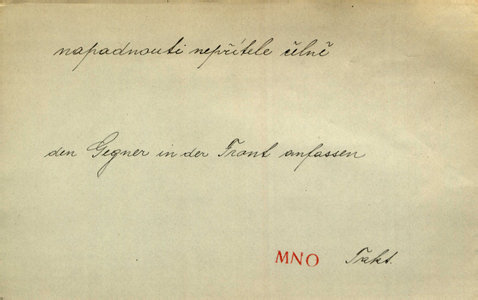 napadnouti nepřítele čelně
den Gegner in der Front anfassen
MNO Takt.